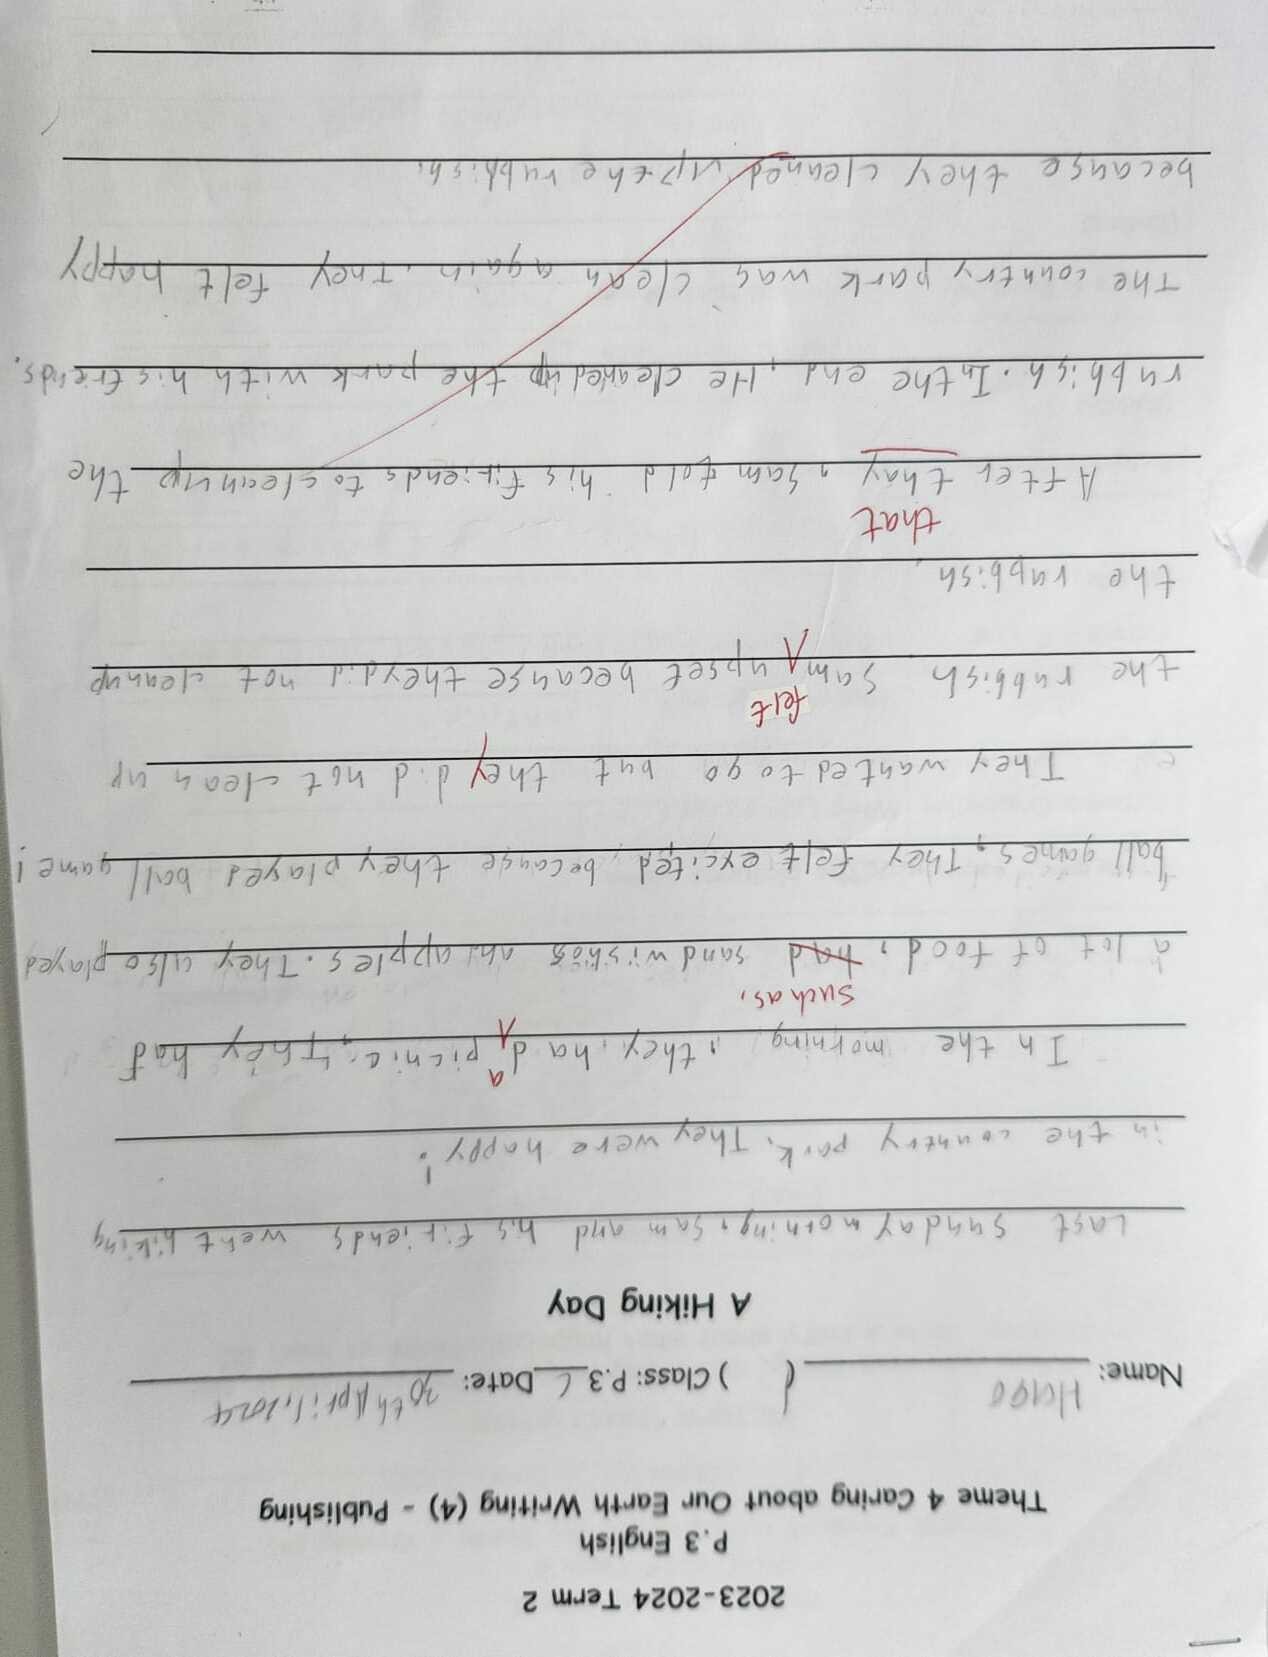 2023-2024 Term 2
P.3 English
Theme 4 Caring about Our Earth Writing (4) - Publishing
Name: Hugo ( ) Class: P.3 C Date: 30th April, 2024
A Hiking Day
Last sunday morning, sam and his friends went hiking
in the country park. They were happy!
In the morning, they had a picnic. They had
such as,
a lot of food, had sandwishes and apples. They also played
ball games. They felt excited because they played ball game!
They wanted to go but they did not clean up
felt
the rubbish. Sam upset because they did not cleanup
the rubbish.
that
After thay, Sam told his friends to cleanup the
rubbish. In the end, He cleaned up the park with his friends.
The country park was clean again. They felt happy
because they cleaned up the rubbish.